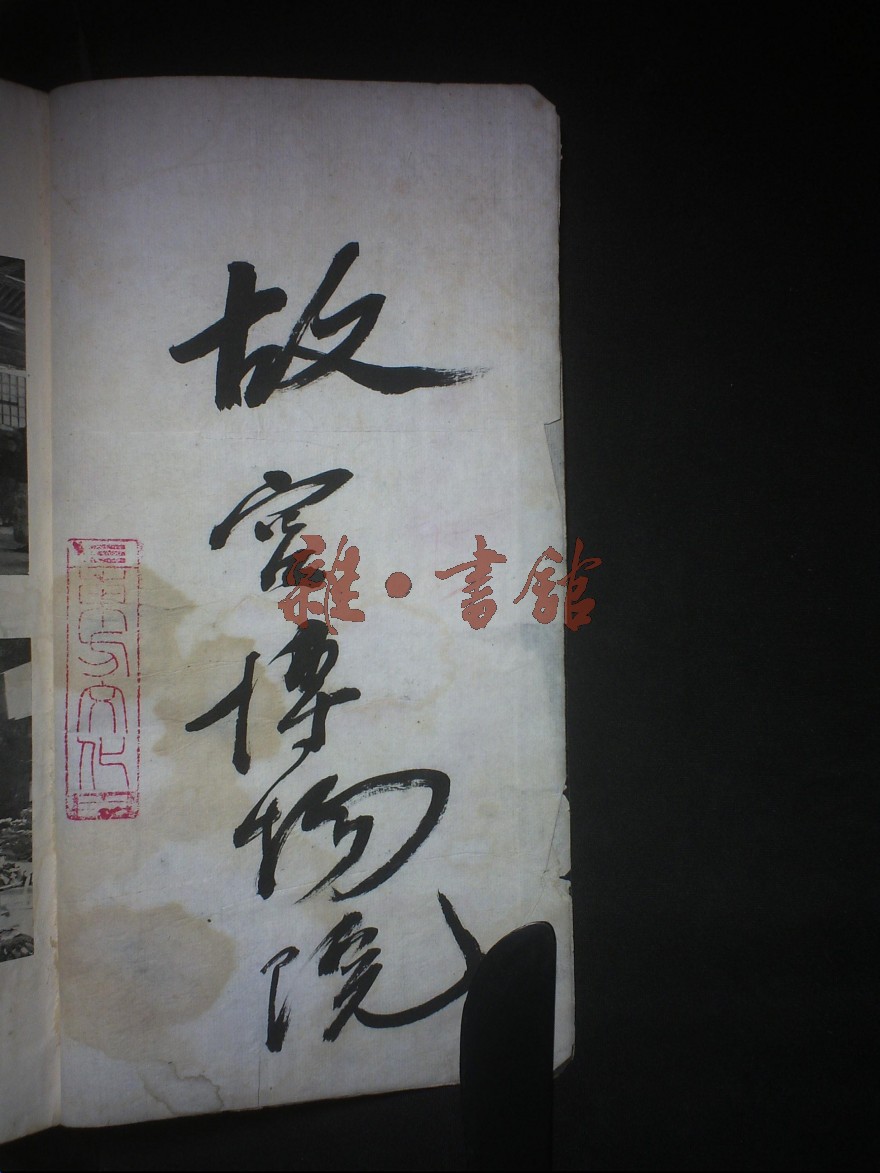 故宮博物院
雜·書館